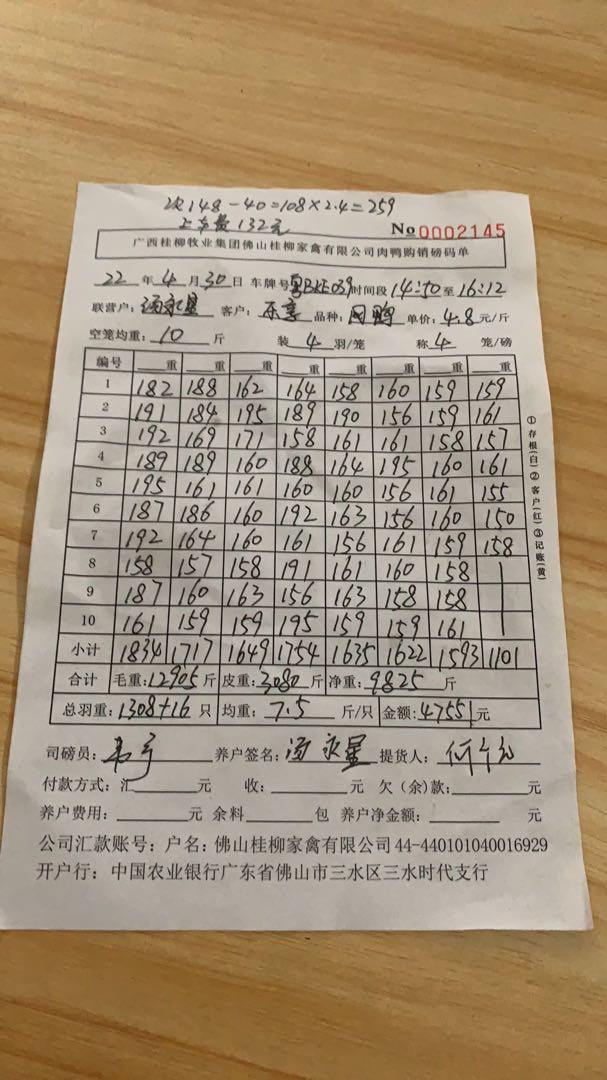 次148-40=108×2.4=259
上车费132元
No 0002145
广西桂柳牧业集团佛山桂柳家禽有限公司肉鸭购销磅码单
22年4月30日 车牌号 粤BKE039 时间段 14:50至16:12
联营户: 客户:乐享 品种: 鸭 单价:4.8元/斤
空笼均重:10斤 装4羽/笼 称4笼/磅
编号 重 重 重 重 重 重 重 重
1 182 188 162 164 158 160 159 159
2 191 184 195 189 190 156 159 161
3 192 169 171 158 161 161 158 157
4 189 189 160 188 164 195 160 161
5 195 161 161 160 160 156 161 155
6 187 186 160 192 163 156 160 150
7 192 164 160 161 156 161 159 158
8 158 157 158 191 161 160 158
9 187 160 163 156 163 158 158
10 161 159 159 195 159 159 161
小计 1834 1717 1649 1754 1635 1622 1593 1101
合计 毛重:12905斤 皮重:3080斤 净重:9825斤
总羽重:1308+16只 均重:7.5斤/只 金额:47551元
司磅员: 养户签名:汤永星 提货人:
付款方式:汇 元 收: 元 欠(余)款: 元
养户费用: 元 余料 包 养户净金额: 元
公司汇款账号:户名:佛山桂柳家禽有限公司44-440101040016929
开户行:中国农业银行广东省佛山市三水区三水时代支行
①存根(白)②客户(红)③记账(黄)